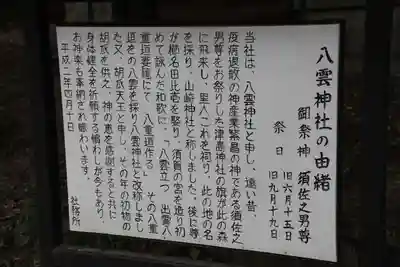 八雲神社の由緒
御祭神 須佐之男尊
祭日 旧六月十五日
旧九月十九日
当社は、八雲神社と申し、遠い昔、
疫病退散の神産業繁昌の神である須佐之
男尊をお祭りした津島神社の旗が此の森
に飛来し、里人これを祠り、此の地の名
を採り、山崎神社と称しました。後に尊
が櫛名田比壱を娶り、須賀の宮を造り初
めて詠んだ和歌に、「八雲立つ 出雲八
重垣妻籠にて 八重垣作る」 その八重
垣をの八雲を採り八雲神社と改称しまし
た又、胡瓜天王と申し、その年の初物の
胡瓜を供え、神の恵を感謝すると共に
身体健全を祈願する慣わしが今もあり、
お神楽も奉納され賑わいます。
平成二年四月十日
社務所